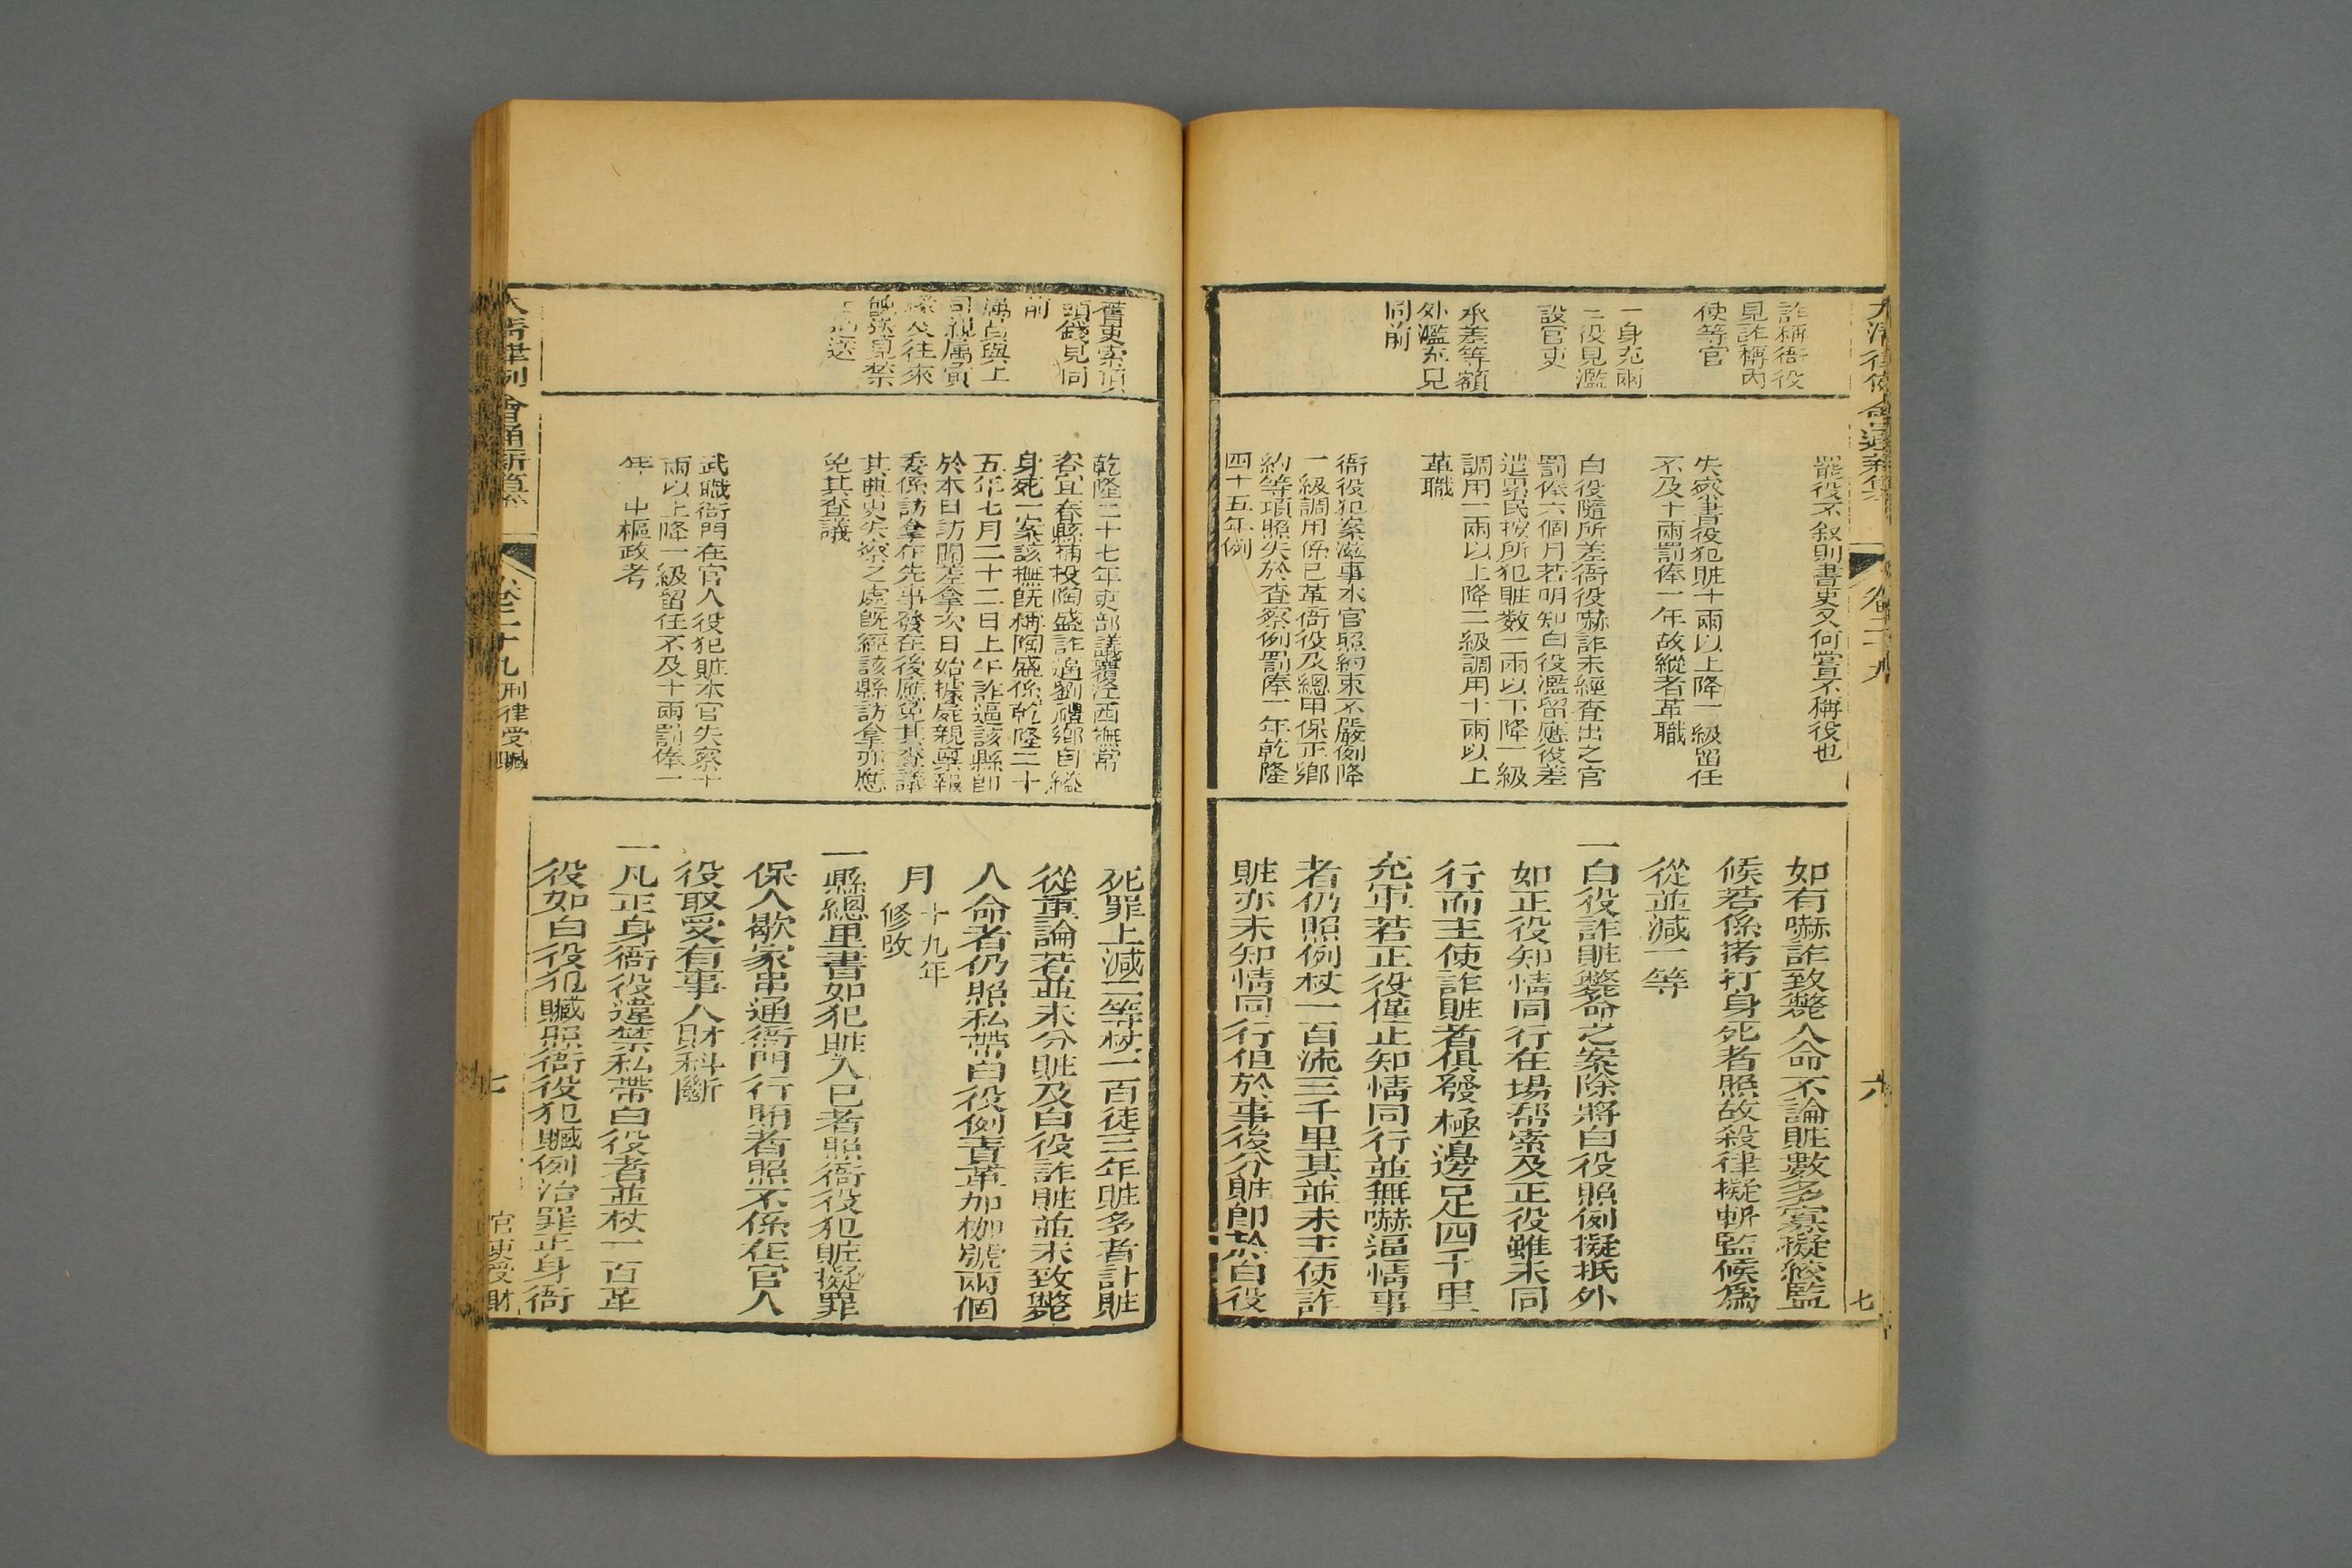 詐稱衙役
見詐稱內
使等官
一身充兩
三役見濫
設官吏
承差等額
外濫充見
同前
罷役不叙則書吏又何嘗不稱役也
失察書役犯賍十兩以上降一級留任
不及十兩罰俸一年故縱者革職
白役隨所差衙役嚇詐未經查出之官
罰俸六個月若明知白役濫留應役差
遣累民按所犯賍数一兩以下降一級
調用一兩以上降二級調用十兩以上
革職
衙役犯案滋事本官照約束不嚴例降
一級調用係已革衙役及總甲保正鄉
約等項照失於查察例罰俸一年乾隆
四十五年例
如有嚇詐致斃人命不論賍數多寡擬絞監
候若係拷打身死者照故殺律擬斬監候為
從並減一等
一白役詐賍斃命之案除將白役照例擬抵外
如正役知情同行在場帮索及正役雖未同
行而主使詐賍者俱發極邊足四千里
充軍若正役僅止知情同行並無嚇逼情事
者仍照例杖一百流三千里其並未主使詐
賍亦未知情同行但於事後分賍即於白役
卷三十九
六
七
舊吏索頂
頭錢見同
前
属員與上
司親属寅
緣交往來
餽送見禁
止餽送
乾隆二十七年吏部議覆江西撫常
咨宜春縣捕役陶盛詐逼劉禮鄉自縊
身死一案該撫既稱陶盛係乾隆二十
五年七月二十二日上午詐逼該縣即
於本日訪聞差拿次日始據屍親稟報
委係訪拿在先事發在後應免其查議
其典史失察之處既經該縣訪拿亦應
免其查議
武職衙門在官人役犯賍本官失察十
兩以上降一級留任不及十兩罰俸一
年 中樞政考
死罪上減二等杖一百徒三年賍多者計賍
從重論若並未分賍及白役詐賍並未致斃
人命者仍照私帶白役例責革加枷號兩個
月 十九年
修改
一縣總里書如犯賍入已者照衙役犯賍擬罪
保人歇家串通衙門行賄者照不係在官人
役取受有事人財科斷
一凡正身衙役違禁私帶白役者並杖一百革
役如白役犯贓照衙役犯贓例治罪正身衙
大清律例會通新纂
卷三十九
刑律受贓
七
官吏受財